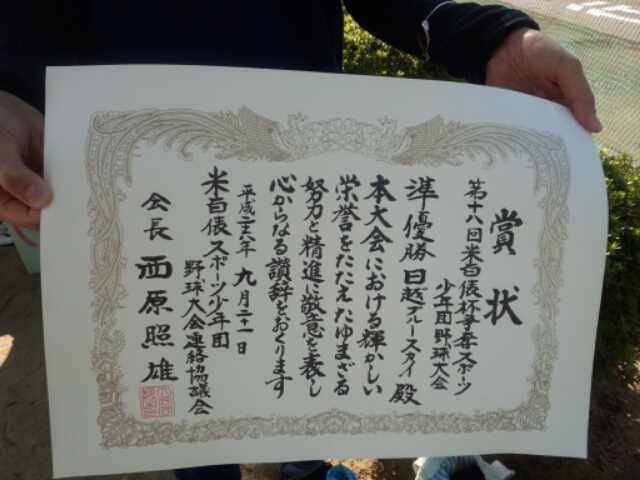 賞状
第十八回米百俵杯争奪スポーツ
少年団野球大会
準優勝 日越ブルースカイ 殿
本大会における輝かしい
栄誉をたたえたゆまざる
努力と精進に敬意を表し
心からなる讃辞をおくります
平成二十八年 九月二十一日
米百俵スポーツ少年団
野球大会連絡協議会
会長 西原照雄